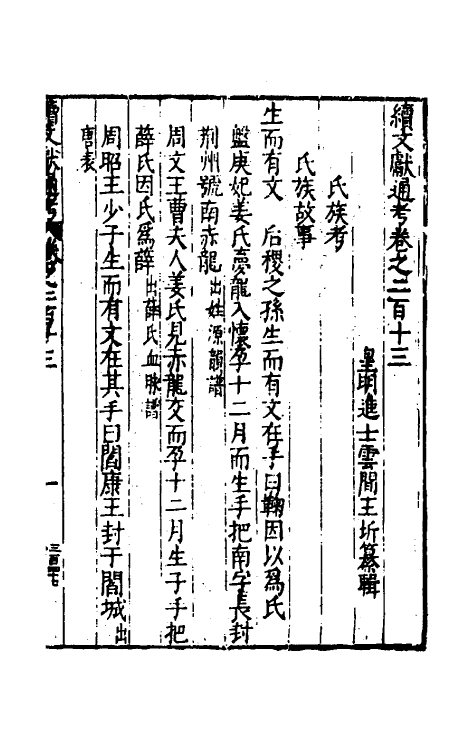 續文獻通考卷之二百十三
皇明進士雲間王圻纂輯
氏族考
氏族故事
生而有文　后稷之孫生而有文在手曰鞠因以為氏
盤庚妃姜氏夢龍入懷孕十二月而生手把南字長封
荆州號南赤龍出姓源韻譜
周文王曹夫人姜氏見赤龍交而孕十二月生子手把
薛氏因氏爲薛出薛氏血脉譜
周昭王少子生而有文在其手曰閻康王封于閻城出
唐表
續文獻通考 卷之二百十三
一